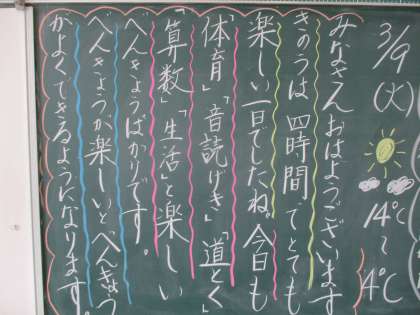 3/9
(火)
14℃
〜
4℃
みなさんおはようございます
きのうは四時間でとても
楽しい一日でしたね。今日も
「体育」「音読げき」「道とく」
「算数」「生活」と楽しい
べんきょうばかりです。
べんきょうが楽しいとべんきょう
がよくできるようになります。